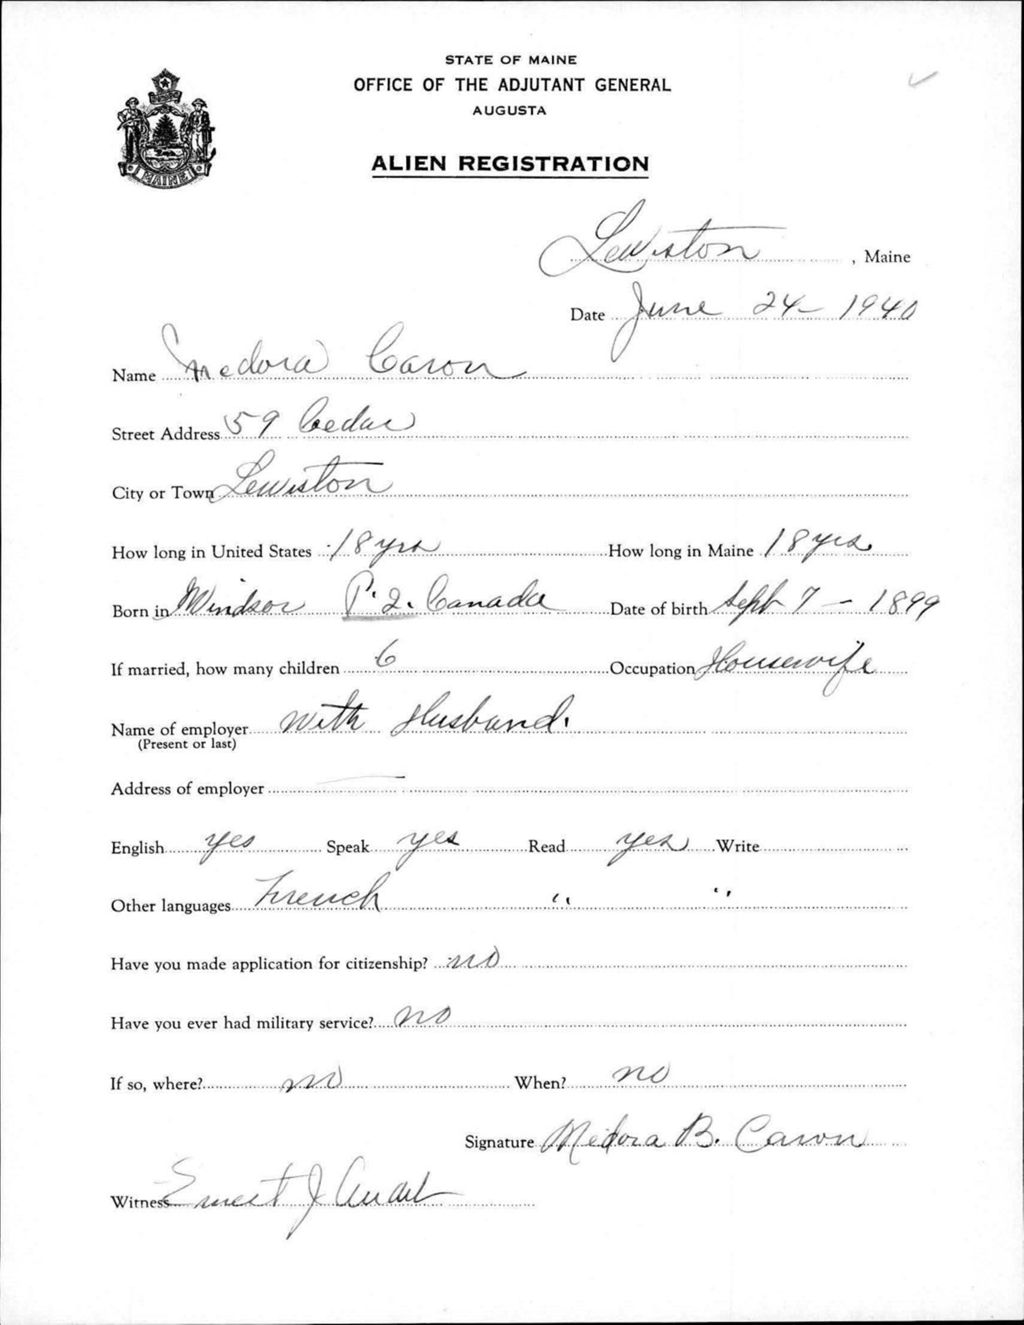 STATE OF MAINE
OFFICE OF THE ADJUTANT GENERAL
AUGUSTA
MAINE
ALIEN REGISTRATION
Lewiston, Maine
Date June 24 - 1940
Name Medora Caron
Street Address 59 Cedar
City or Town Lewiston
How long in United States 18 yrs How long in Maine 18 yrs
Born in Windsor P.Q. Canada Date of birth Sept 7 - 1899
If married, how many children 6 Occupation Housewife
Name of employer with Husband.
(Present or last)
Address of employer —
English yes Speak yes Read yes Write
Other languages French " "
Have you made application for citizenship? no
Have you ever had military service? no
If so, where? no When? no
Signature Medora B. Caron
Witness Ernest J